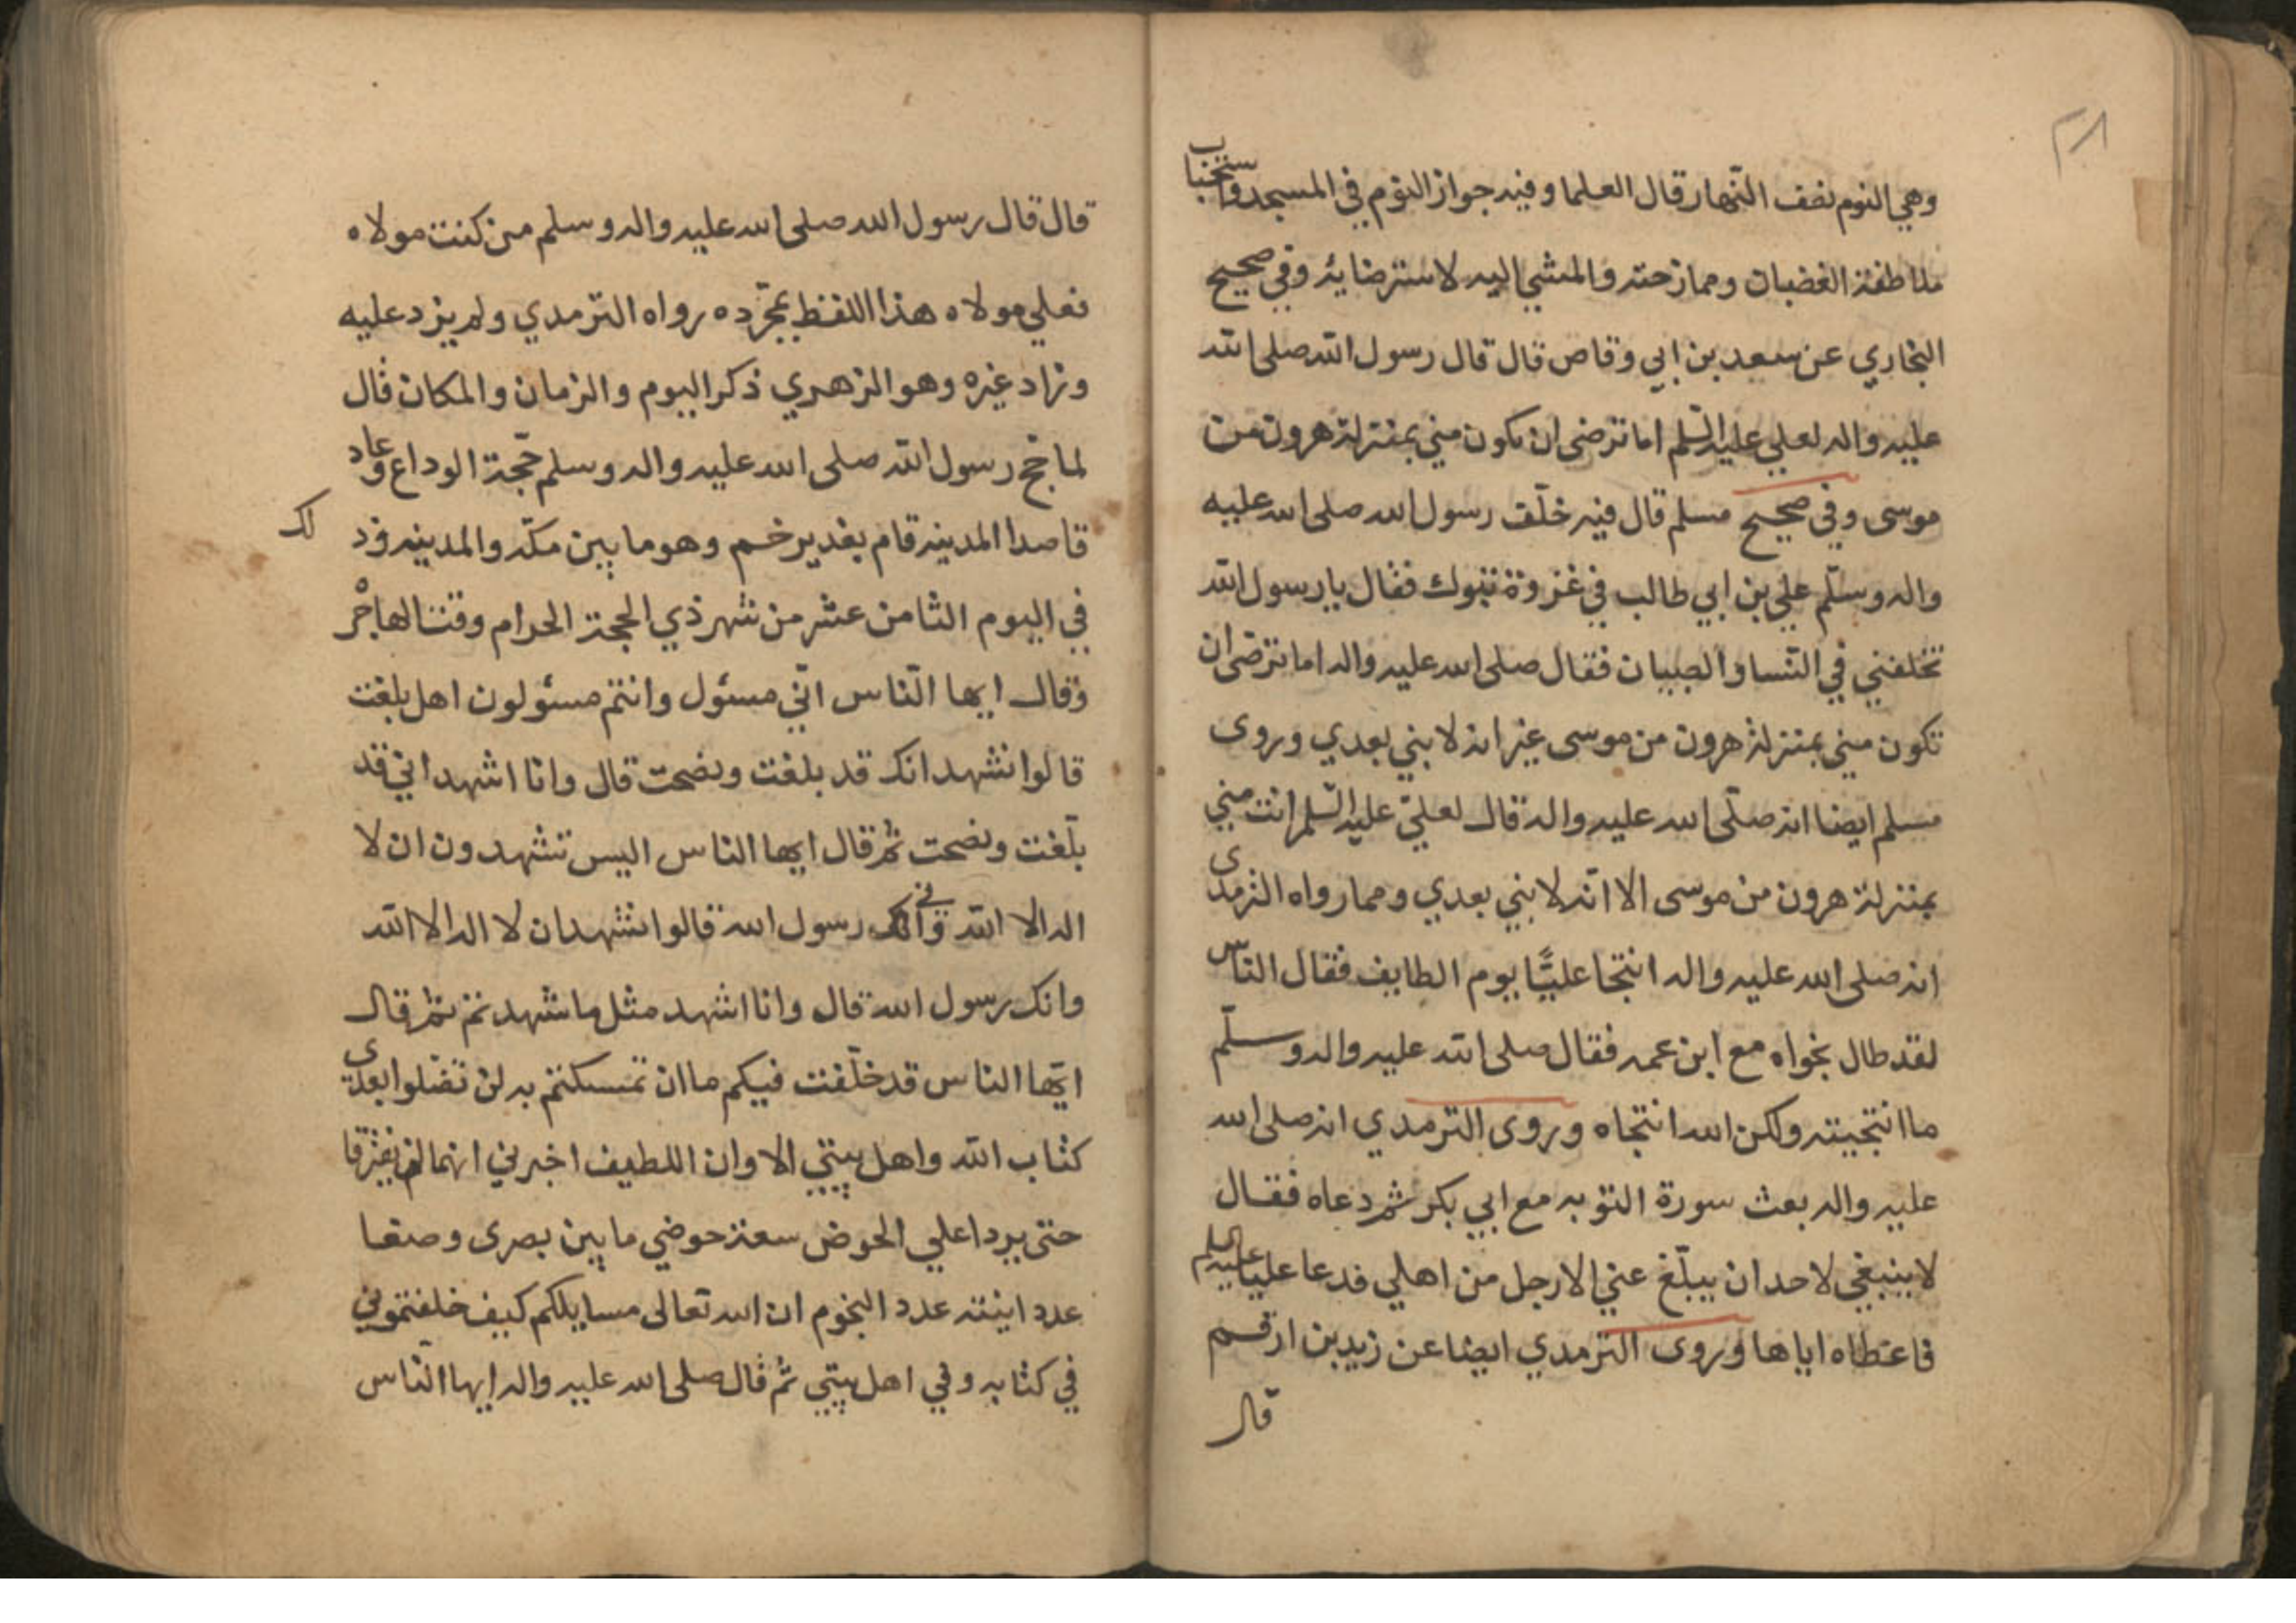 ٢٨
وهي النوم نصف النّهار قال العلما وفيه جواز النوم في المسجد واستحباب
ملاطفة الغضبان وممازحته والمشي اليه لاسترضايه وفي صحيح
البخاري عن سعد بن ابي وقاص قال قال رسول الله صلى الله
عليه واله لعلي عليه السّلم اما ترضى ان تكون مني بمنزلة هرون من
موسى وفي صحيح مسلم قال فيه خلّف رسول الله صلى الله عليه
واله وسلّم علي بن ابي طالب في غزوة تبوك فقال يا رسول الله
تخلفني في النّسا والصبيان فقال صلى الله عليه واله اما ترضى ان
تكون مني بمنزلة هرون من موسى غير انه لا نبي بعدي وروى
مسلم ايضا انه صلّى الله عليه واله قال لعليّ عليه السّلم انت مني
بمنزلة هرون من موسى الا انّه لا نبي بعدي ومما رواه الترمدى
انه صلى الله عليه واله انتجا عليًّا يوم الطايف فقال الناس
لقد طال نجواه مع ابن عمه فقال صلى الله عليه واله وسلّم
ما انتجيته ولكن الله انتجاه وروى الترمدي انه صلى الله
عليه واله بعث سورة التوبه مع ابي بكر ثم دعاه فقال
لا ينبغي لاحد ان يبلّغ عني الا رجل من اهلي فدعا عليا عليه السلم
فاعطاه اياها وروى الترمدي ايضا عن زيد بن ارقم
قال
قال قال رسول الله صلى الله عليه واله وسلم من كنت مولاه
فعلي مولاه هذا اللفظ بمجرّده رواه الترمدي ولم يزد عليه
وزاد غيره وهو الزهري ذكر اليوم والزمان والمكان قال
لما حج رسول الله صلى الله عليه واله وسلم حجّة الوداع وعاد
قاصدا المدينه قام بغدير خم وهو ما بين مكّه والمدينه وذ
لك
في اليوم الثامن عشر من شهر ذي الحجة الحرام وقت الهاجر
وقال ايها النّاس انّي مسئول وانتم مسئولون اهل بلغت
قالوا نشهد انك قد بلغت ونصحت قال وانا اشهد اني قد
بلّغت ونصحت ثم قال ايها الناس اليس تشهدون ان لا
اله الا الله واني رسول الله قالوا نشهد ان لا اله الا الله
وانك رسول الله قال وانا اشهد مثل ما شهدتم ثم قال
ايّها الناس قد خلّفت فيكم ما ان تمسكتم به لن تضلوا بعدى
كتاب الله واهل بيتي الا وان اللطيف اخبرني انهما لن يفترقا
حتى يردا علي الحوض سعة حوضي ما بين بصرى وصنعا
عدد انيته عدد النجوم ان الله تعالى مسايلكم كيف خلفتموني
في كتابه وفي اهل بيتي ثم قال صلى الله عليه واله ايها النّاس